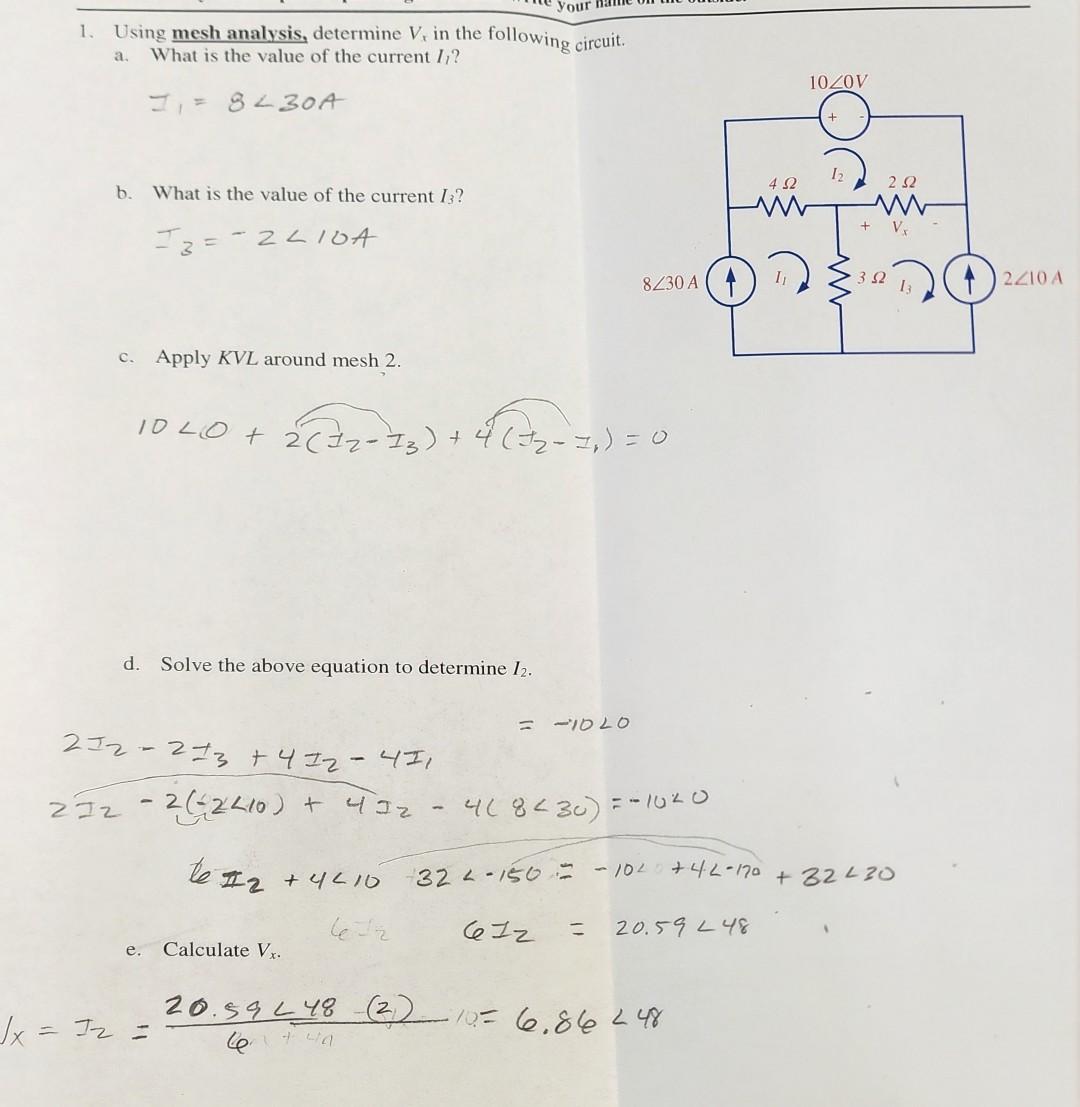 your name on the outside.
1. Using mesh analysis, determine Vx in the following circuit.
a. What is the value of the current I1?
I1 = 8∠30A
10∠0V
+ -
I2
4 Ω
2 Ω
b. What is the value of the current I3?
+ Vx -
I3 = -2∠10A
8∠30 A
I1
3 Ω
I3
2∠10 A
c. Apply KVL around mesh 2.
10∠0 + 2(I2-I3) + 4(I2-I1) = 0
d. Solve the above equation to determine I2.
= -10∠0
2I2 - 2I3 + 4I2 - 4I1
2I2 - 2(-2∠10) + 4I2 - 4(8∠30) = -10∠0
6I2 + 4∠10 32∠-150 = -10∠0 +4∠-170 + 32∠30
6I2 6I2 = 20.59∠48
e. Calculate Vx.
Vx = I2 = 20.59∠48 (2) = 6.86∠48
6